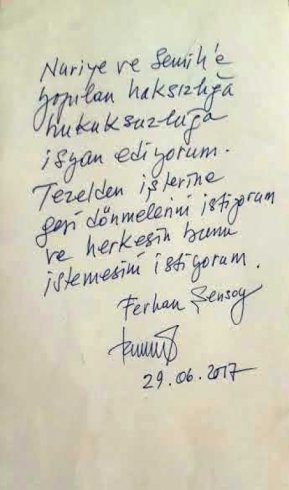 Nuriye ve Semih'e
yapılan haksızlığa
hukuksuzluğa
isyan ediyorum.
Tezelden işlerine
geri dönmelerini istiyorum
ve herkesin bunu
istemesini istiyorum.
Ferhan Şensoy
29.06.2017